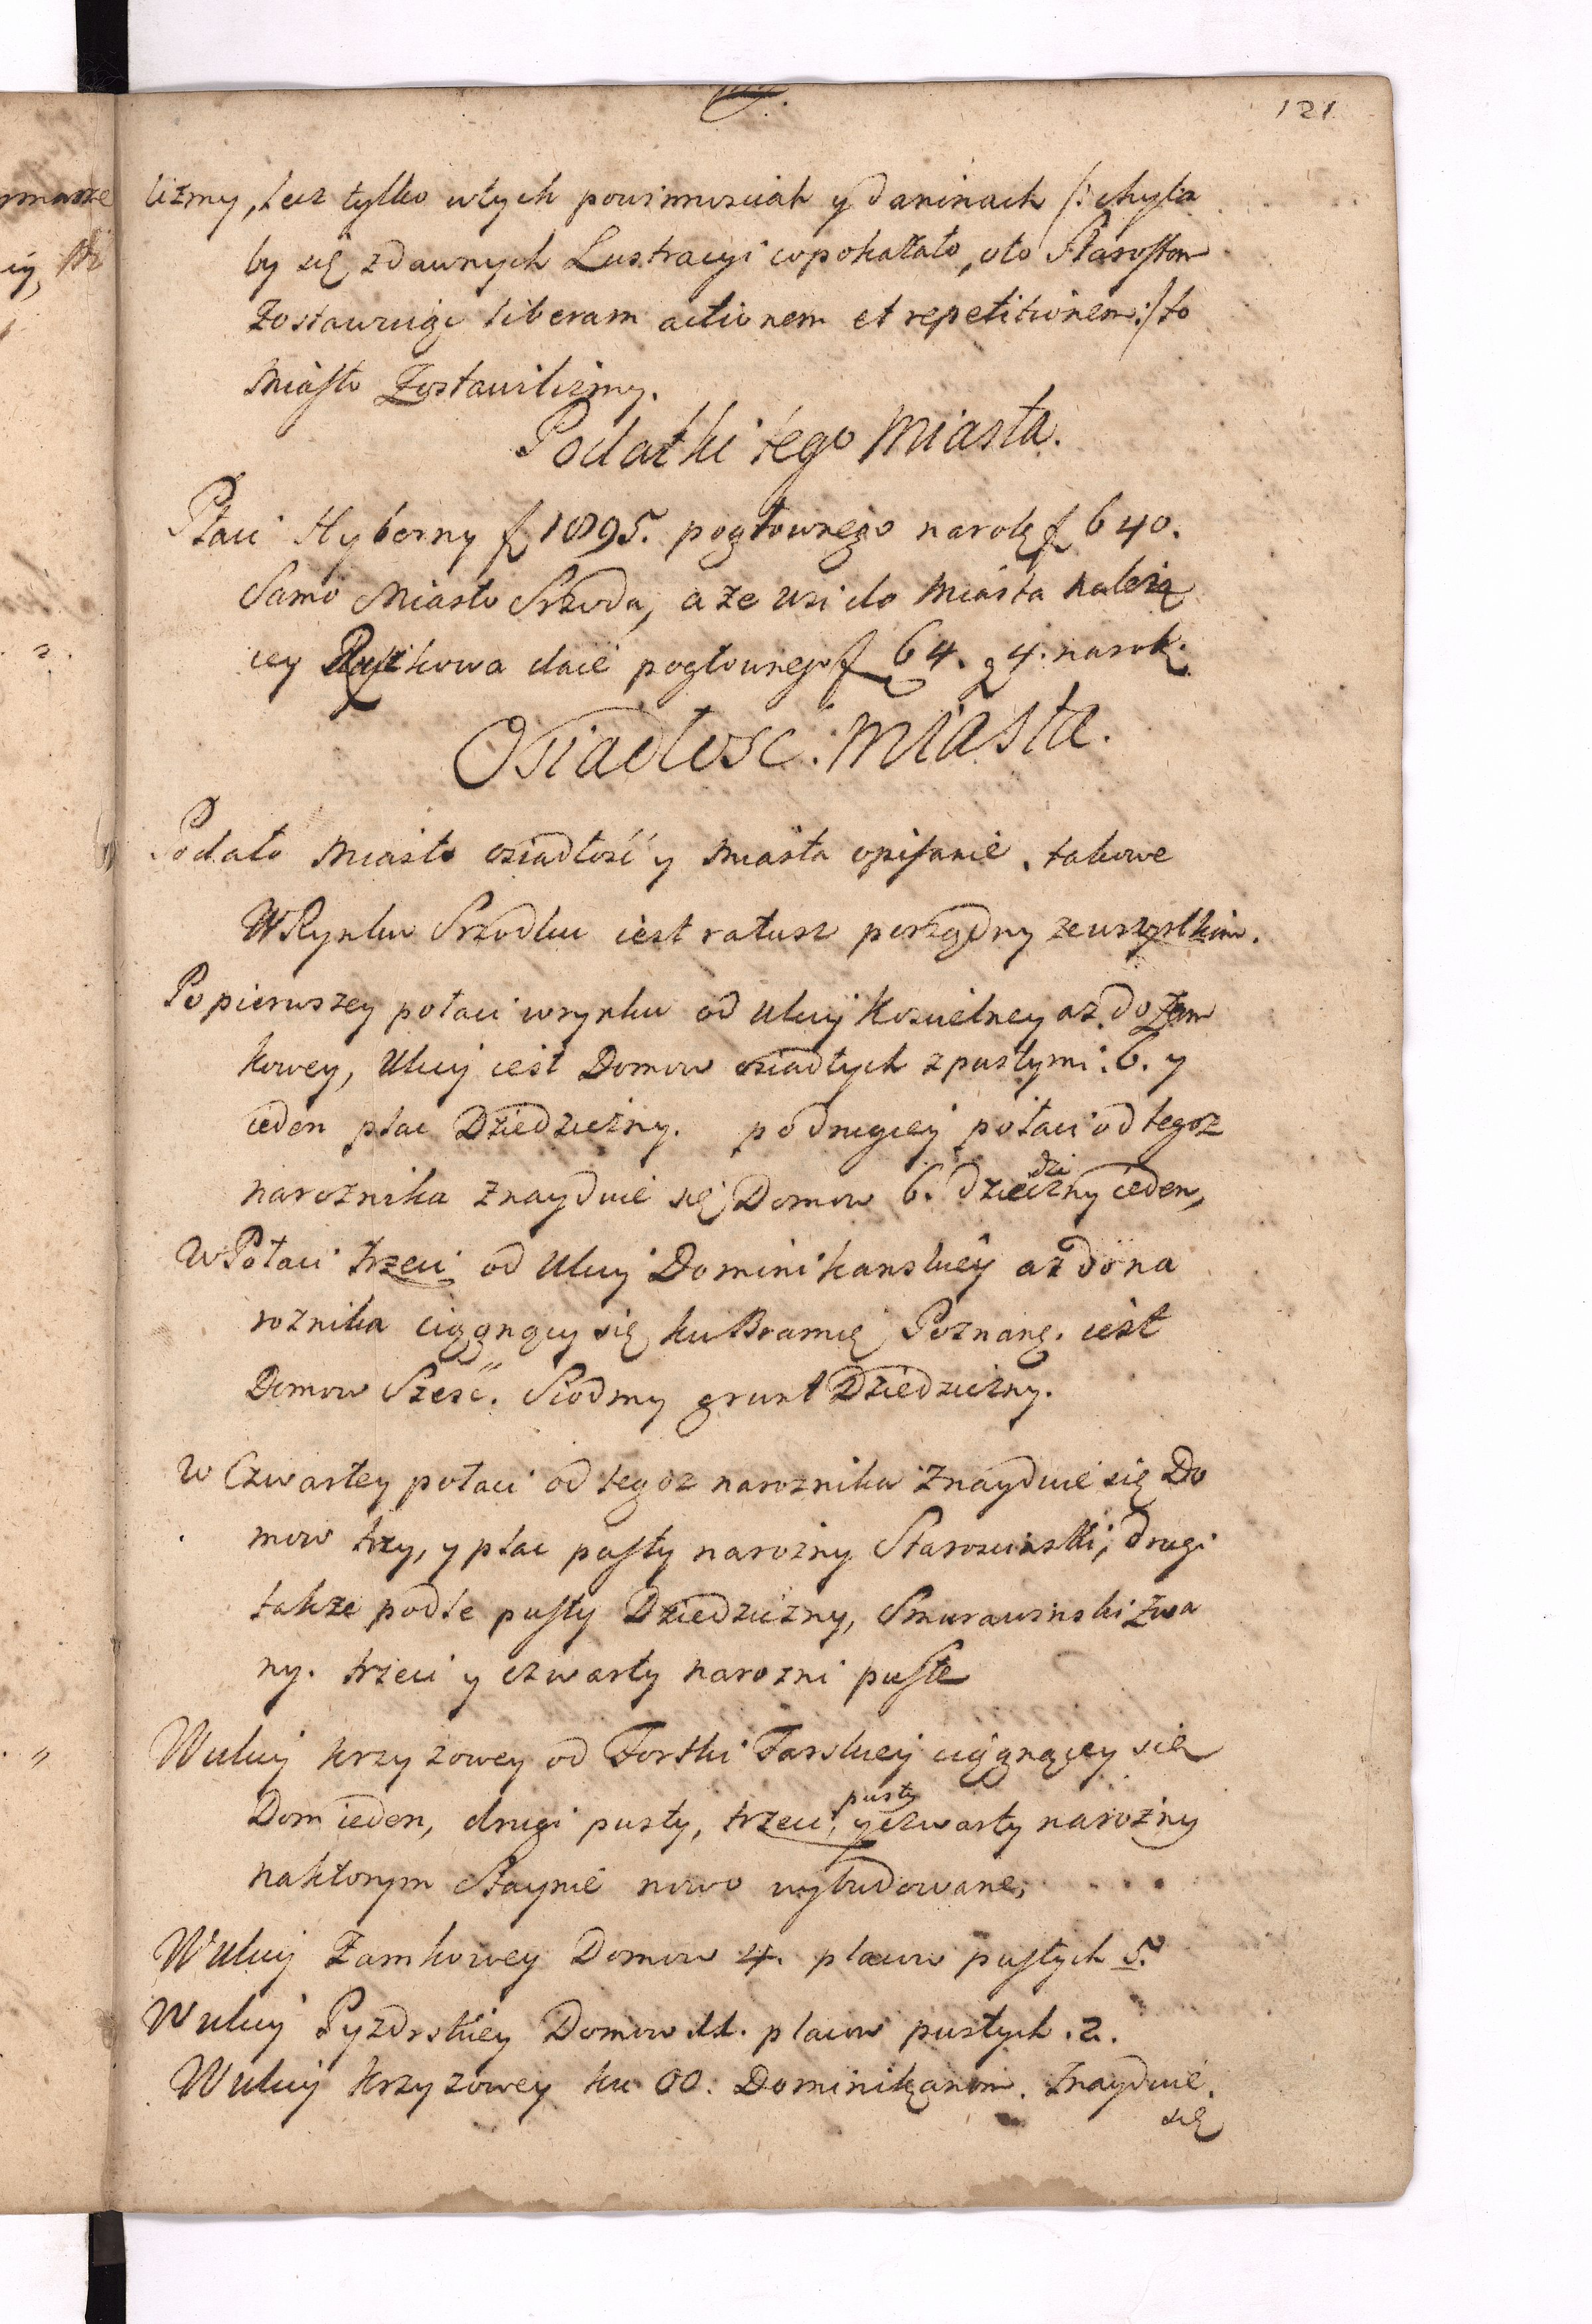 121
lizmy, lecz tylko wtych powinnosciach y daninach /: chyla
by się zdawnych Lustracyi copokazało, oto Starostom
zostawuiąc liberam actionem et repetitionem :/ to
Miasto Zostawilismy.
Podatki tego Miasta.
Płaci Hyberny f 1895. pogłownego narok f 640.
Samo Miasto Srzoda, a ze wsi do Miasta należą
cey Ruszkowa daie pogłownego f 64. g 4. narok.
Osiadłosc Miasta.
Podało Miasto osiadłość y Miasta opisanie takowe
W Rynku Srzodku iest ratusz porządny ze wszystkim.
Po pierwszey połaci wrynku od Ulicy Koscielney az do Zam
kowey, Ulicy iest Domow osiadłych z pustymi 6. y
ieden plac Dziedziczny. po drugiey połaci od tegoz
naroznika znayduie się Domow 6. dziedziczny ieden,
W Połaci trzeci od Ulicy Dominikanskiey az do na
roznika ciągnący się ku Bramie Poznanę. iest
Domow Szesć. Siodmy grunt Dziedziczny.
W Czwartey połaci od tegoz naroznika Znayduie się Do
mow trzy, y plac pusty narozny Staroscinski, drugi
takze podle pusty Dziedziczny, Smurawinski zwa
ny. trzeci y czwarty narozni puste
Wulicy krzyzowey od Fortki Farskiey ciągnącey się
Dom ieden, drugi pusty, trzeci pusty y czwarty narożny
naktorym Staynie nowo wybudowane,
Wulicy Zamkowey Domow 4. placow pustych 5.
Wulicy Pyzdrskiey Domow 11. placow pustych . 2.
Wulicy krzyzowey ku OO. Dominikanom. Znayduie.
się